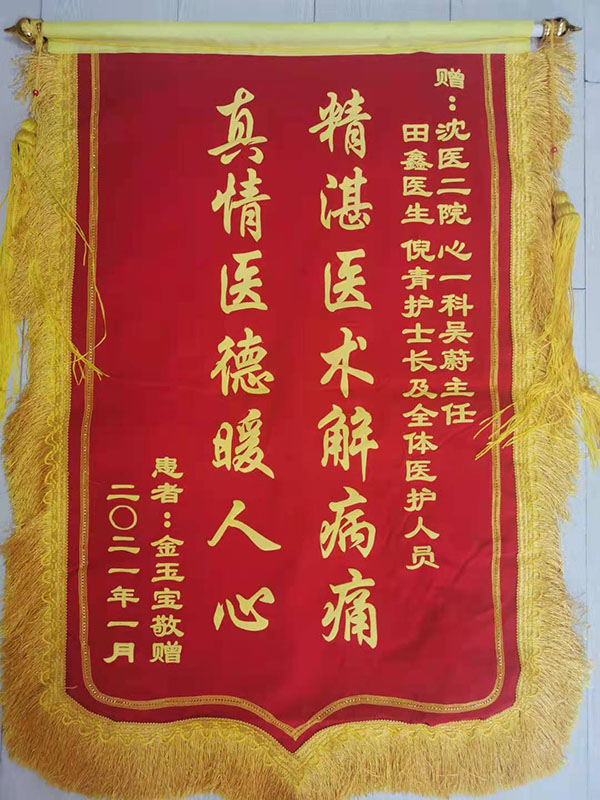 赠：沈医二院 心一科吴蔚主任
田鑫医生 倪青护士长及全体医护人员
精湛医术解病痛
真情医德暖人心
患者：金玉宝敬赠
二〇二一年一月